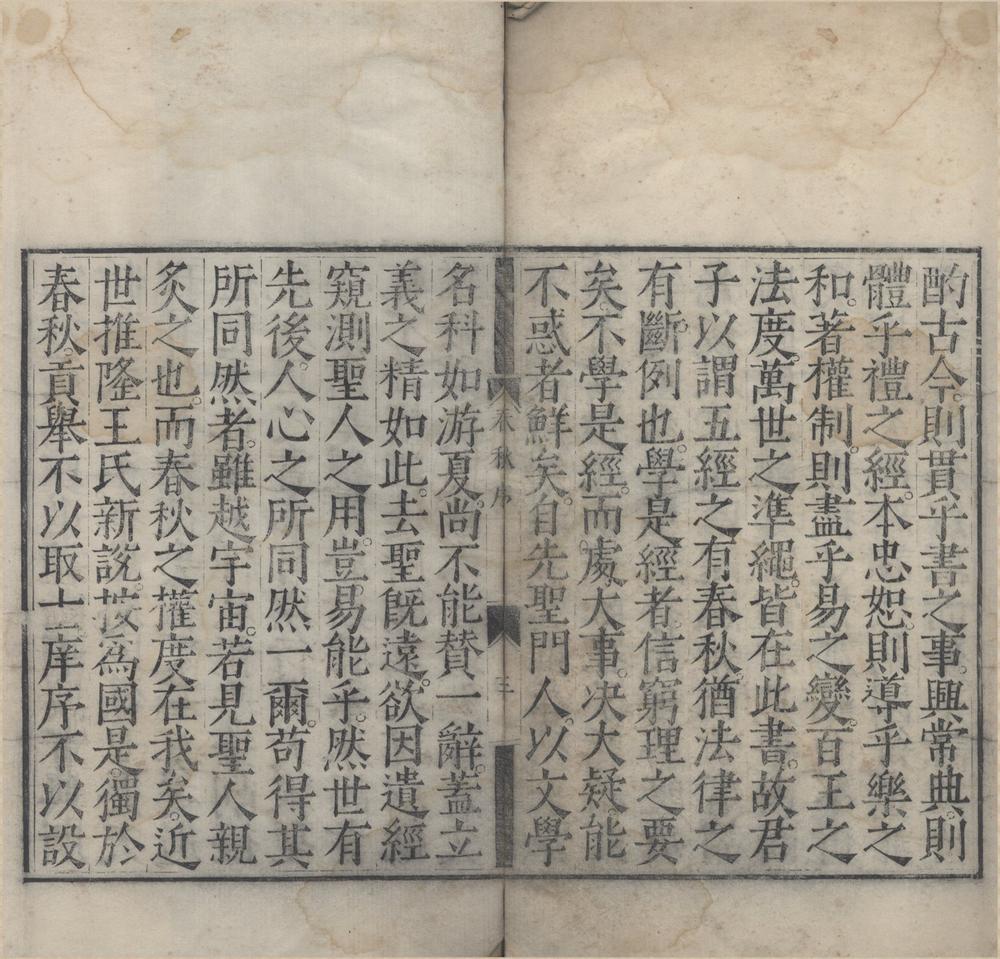 酌古今。則貫乎書之事。興常典。則
體乎禮之經。本忠恕。則導乎樂之
和。著權制。則盡乎易之變。百王之
法度。萬世之準繩。皆在此書。故君
子以謂五經之有春秋。猶法律之
有斷例也。學是經者。信窮理之要
矣。不學是經。而處大事。决大疑。能
不惑者鮮矣。自先聖門人。以文學
春秋序
三
名科如游夏。尚不能賛一辭。蓋立
義之精如此。去聖既遠。欲因遺經
窺測聖人之用。豈易能乎。然世有
先後。人心之所同然一爾。苟得其
所同然者。雖越宇宙。若見聖人親
炙之也。而春秋之權度在我矣。近
世推隆王氏新說。按為國是。獨於
春秋。貢舉不以取士。庠序不以設